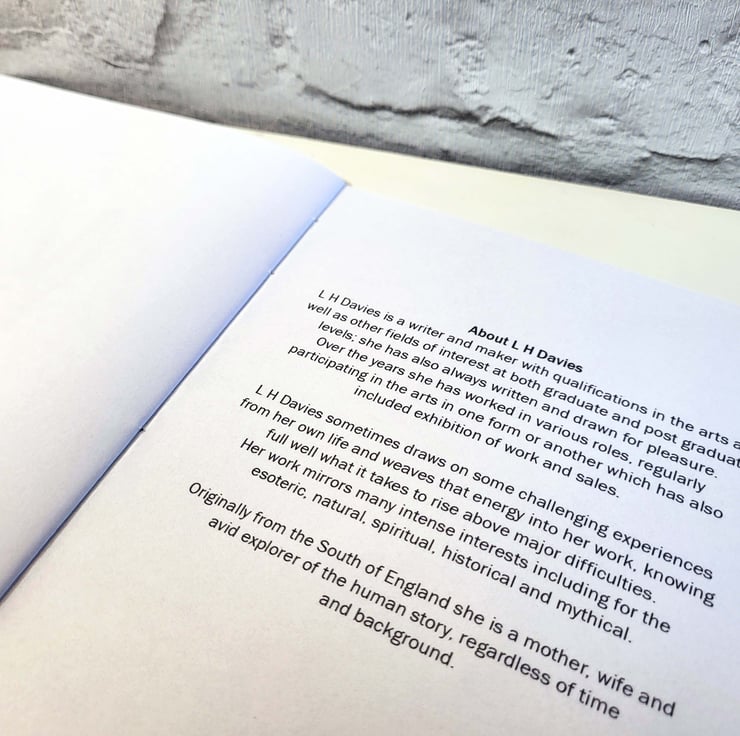 About L H Davies
L H Davies is a writer and maker with qualifications in the arts
well as other fields of interest at both graduate and post
levels; she has also always written and drawn for pleasure.
Over the years she has worked in various roles, regularly
participating in the arts in one form or another which has also
included exhibition of work and sales.
L H Davies sometimes draws on some challenging experiences
from her own life and weaves that energy into her work, knowing
full well what it takes to rise above major difficulties.
Her work mirrors many intense interests including for the
esoteric, natural, spiritual, historical and mythical.
Originally from the South of England she is a mother, wife and
avid explorer of the human story, regardless of time
and background.